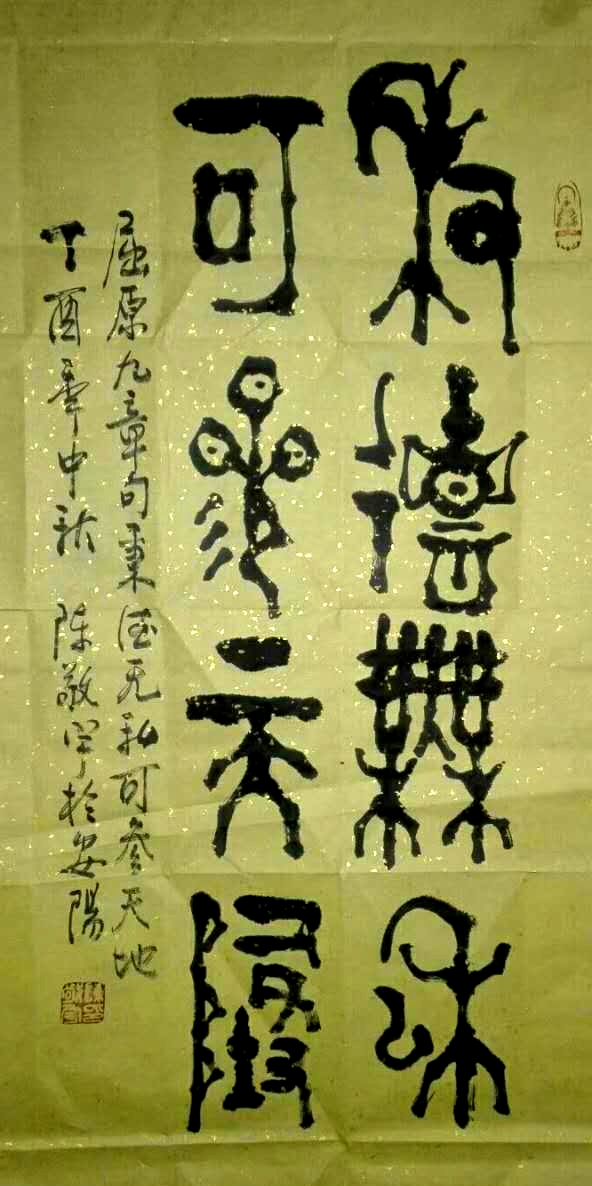 秉德無私
可參天地
屈原九章句秉德无私可参天地
丁酉年中秋 陈敬於安陽